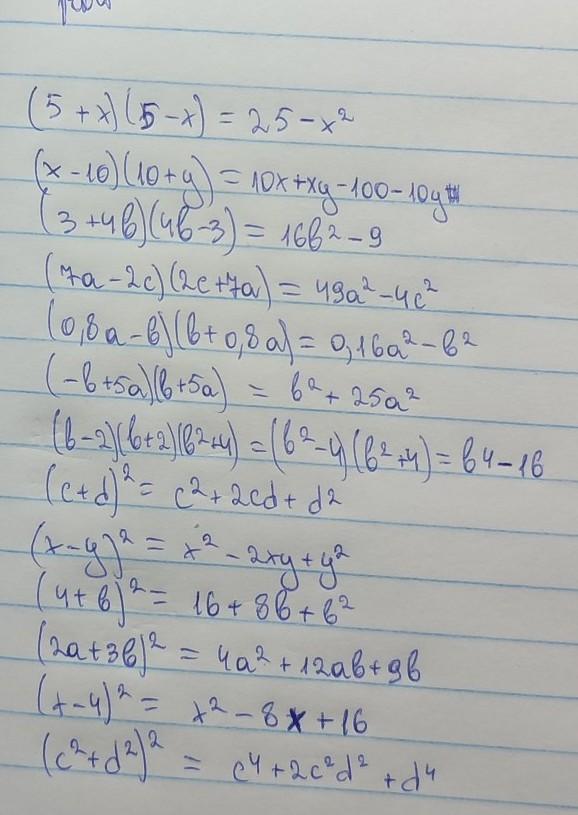 (5 + x)(5 - x) = 25 - x²
(x - 10)(10 + y) = 10x + xy - 100 - 10y
(3 + 4b)(4b - 3) = 16b² - 9
(7a - 2c)(2c + 7a) = 49a² - 4c²
(0,8a - b)(b + 0,8a) = 0,16a² - b²
(-b + 5a)(b + 5a) = b² + 25a²
(b - 2)(b + 2)(b² + 4) = (b² - 4)(b² + 4) = b4 - 16
(c + d)² = c² + 2cd + d²
(x - y)² = x² - 2xy + y²
(4 + b)² = 16 + 8b + b²
(2a + 3b)² = 4a² + 12ab + 9b
(x - 4)² = x² - 8x + 16
(c² + d²)² = c⁴ + 2c²d² + d⁴